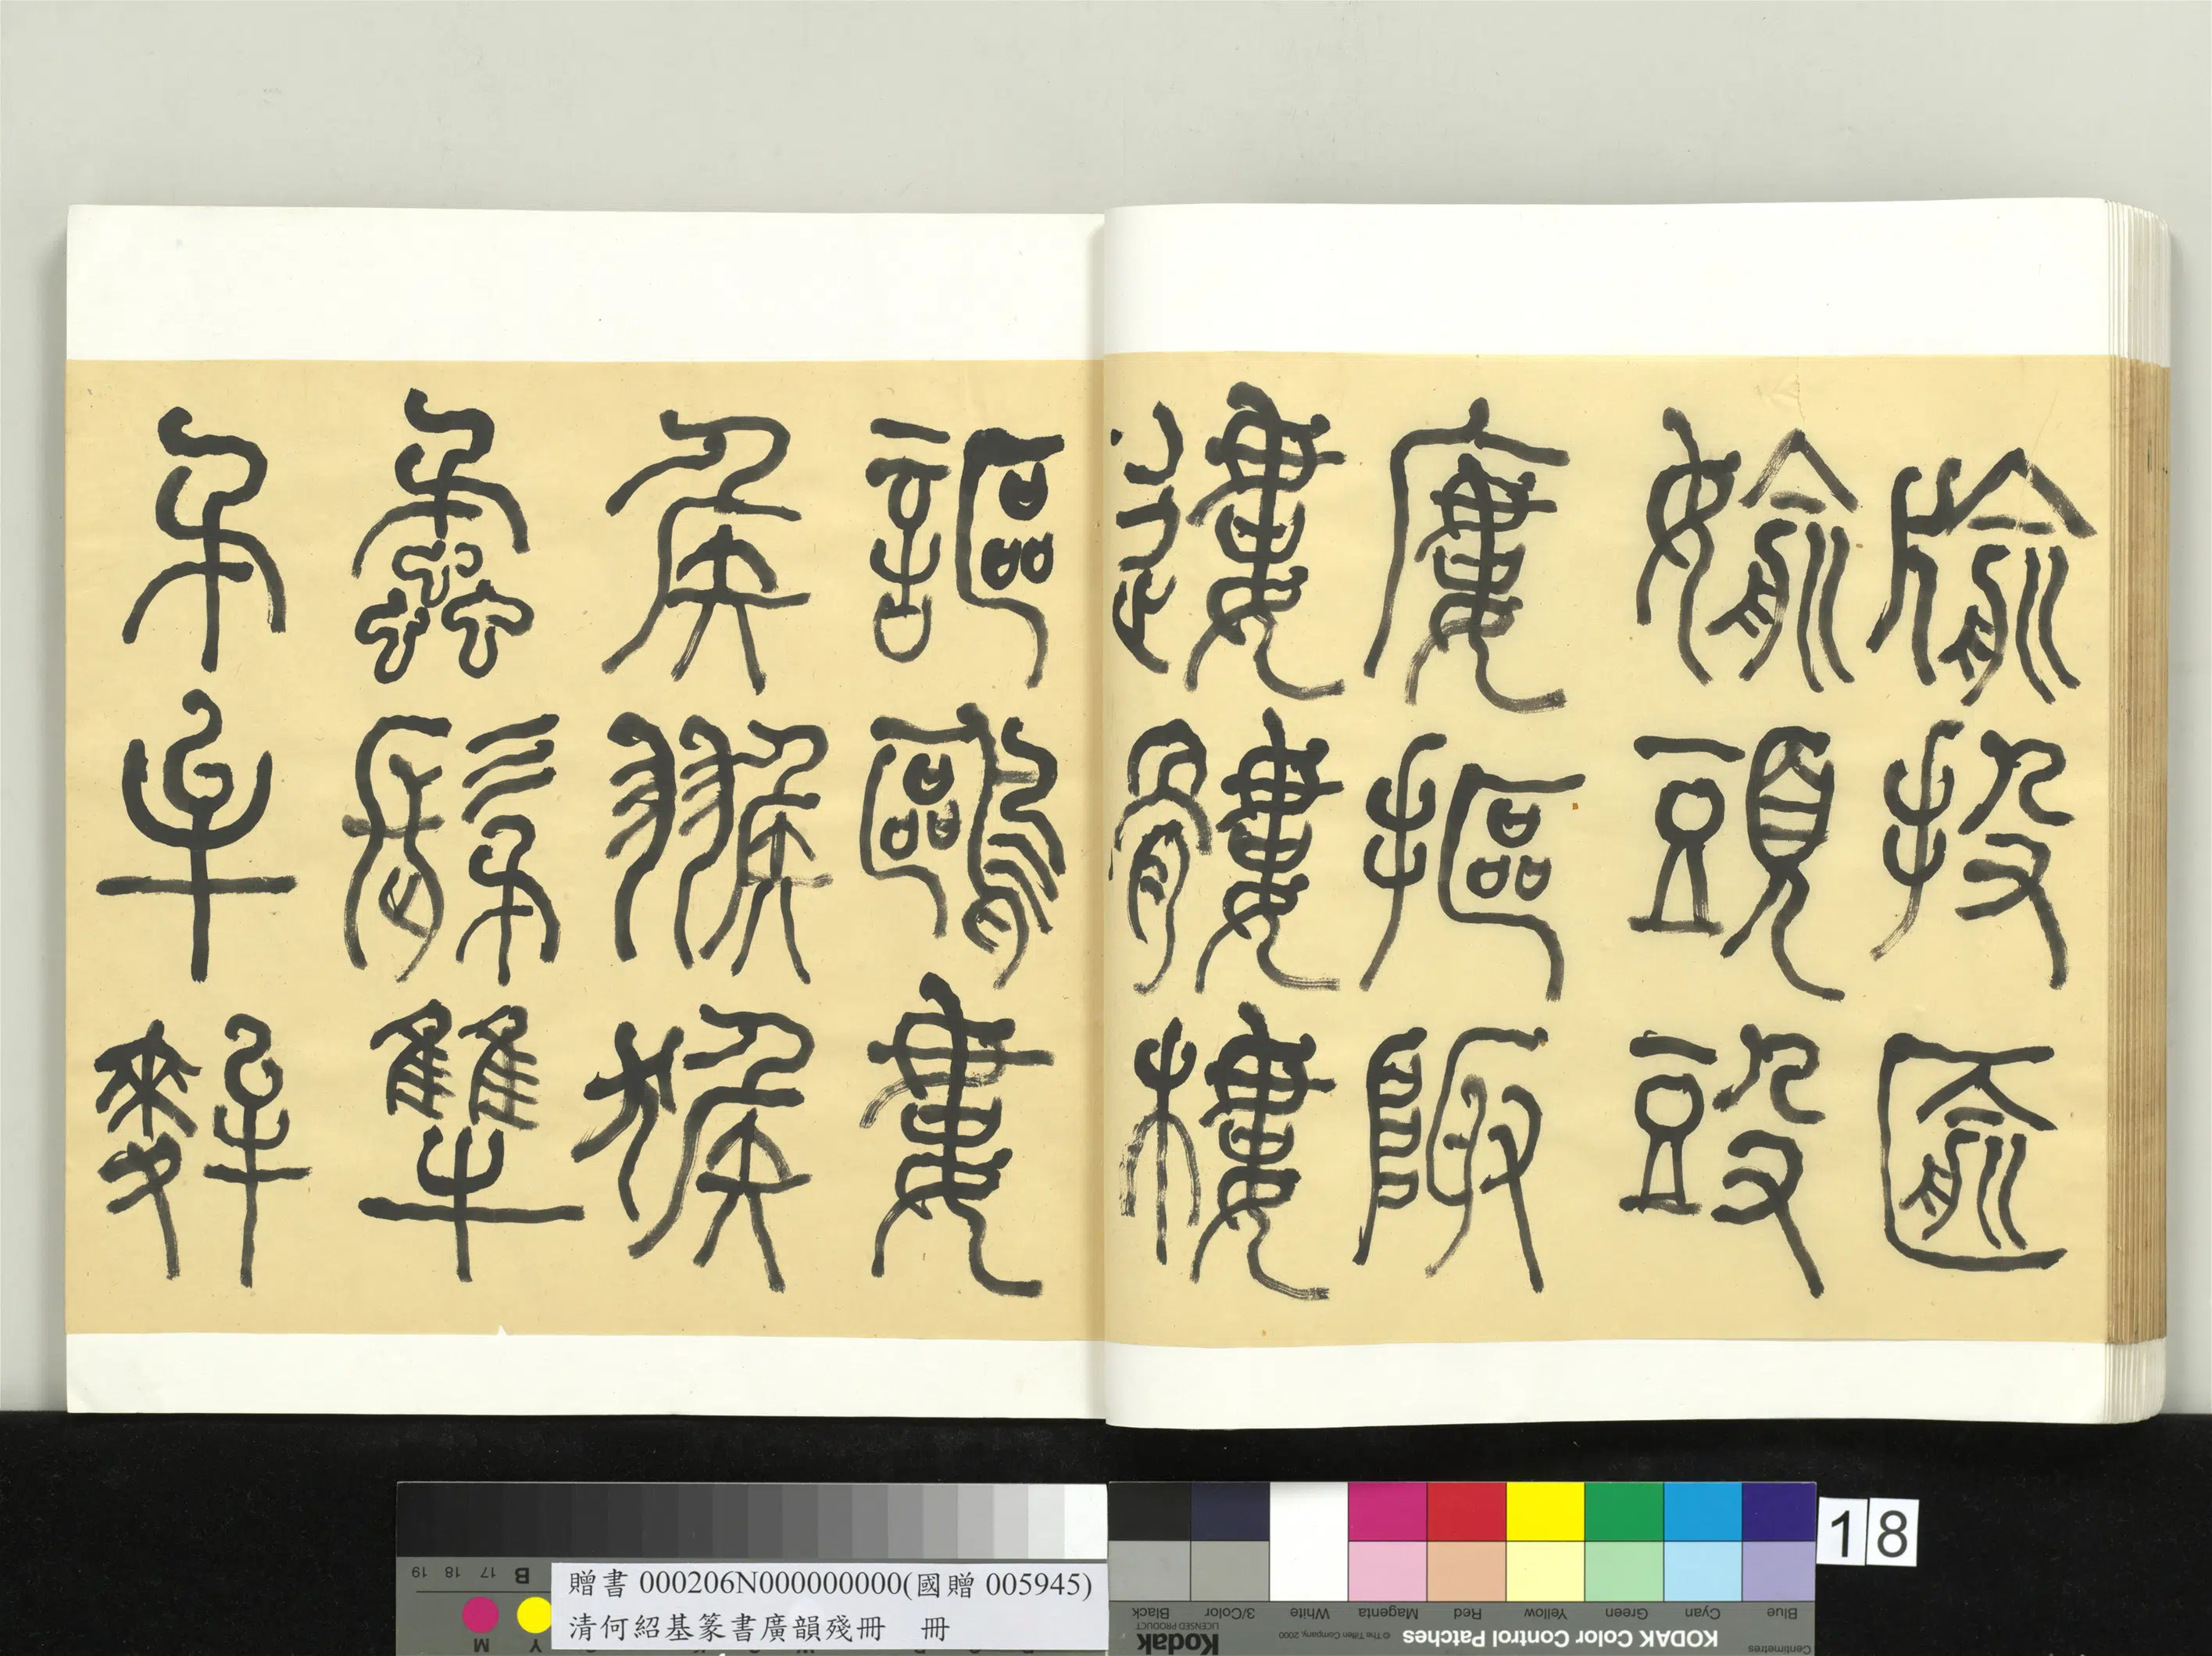 牏投匬
媮頭𣪌
廔摳陬
遱髏樓
謳鷗婁
矦翭猴
蟊髳犨
矛牟麰
18
贈書 000206N000000000(國贈 005945)
清何紹基篆書廣韻殘冊 冊
KODAK Color Control Patches
© The Tiffen Company, 2000
Kodak
LICENSED PRODUCT
Blue Cyan Green Yellow Red Magenta White 3/Color Black
Centimetres
B 17 18 19
M Y